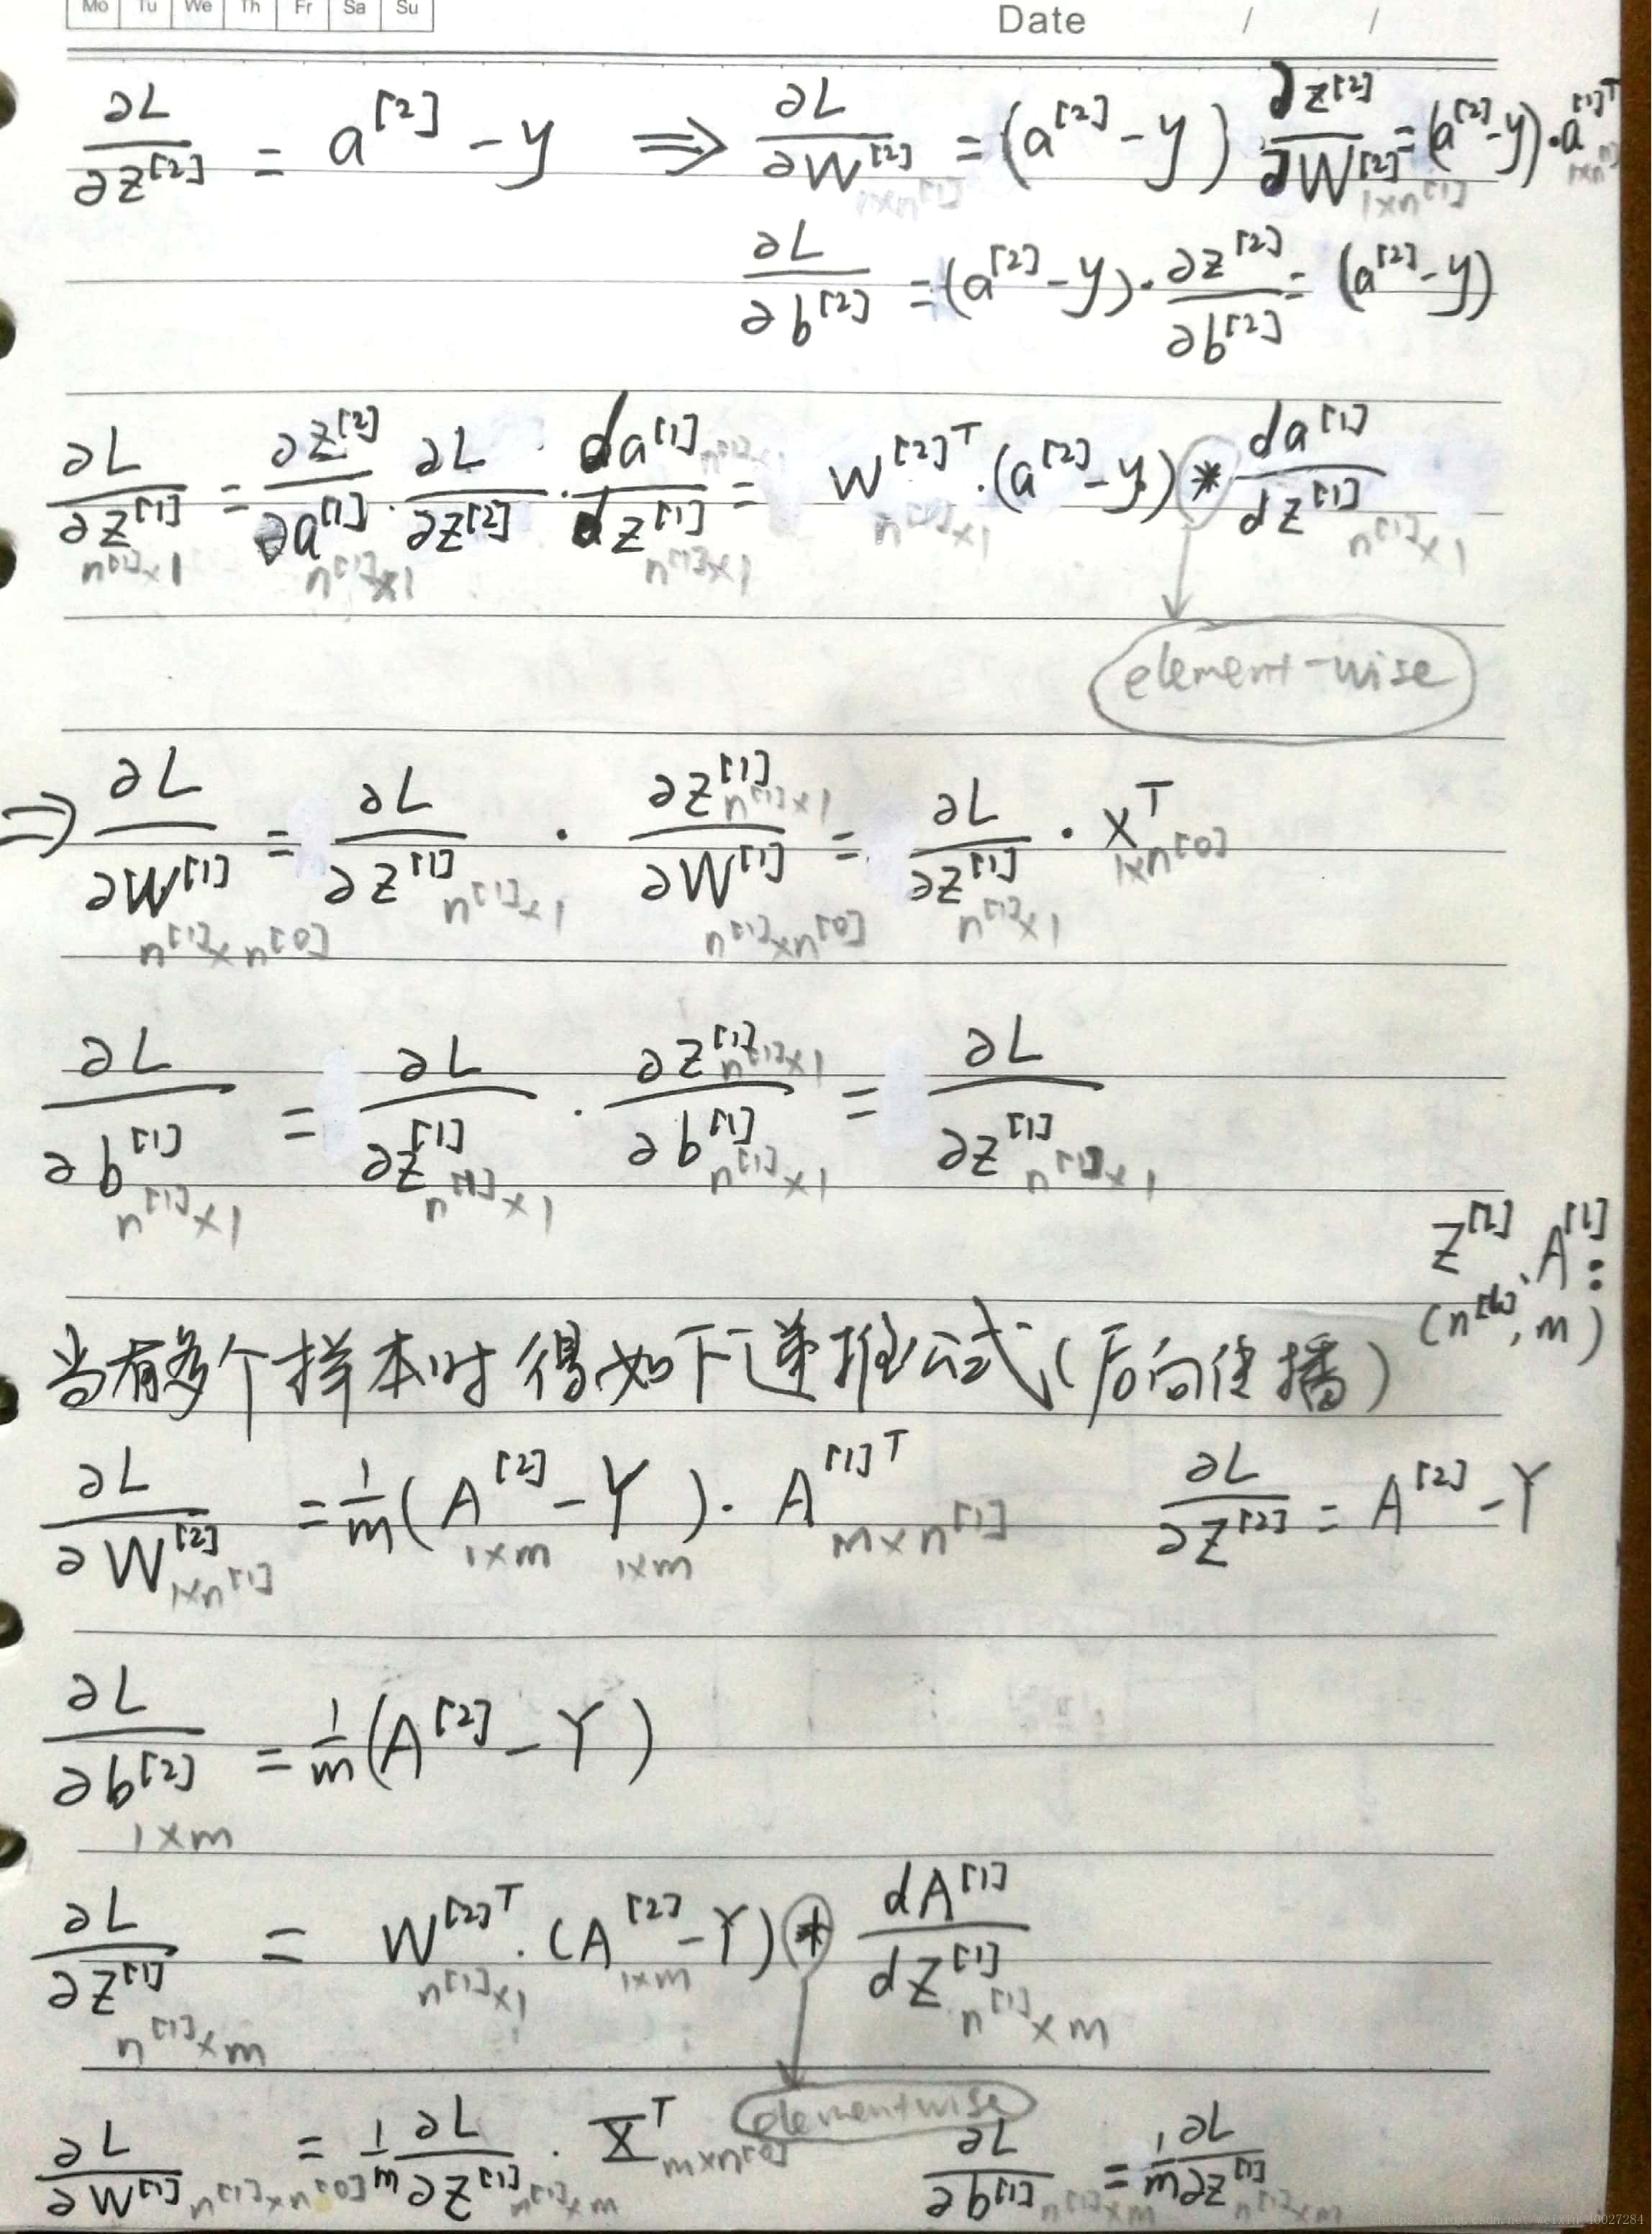 Mo Tu We Th Fr Sa Su
Date / /
∂L/∂z^[2] = a^[2] - y ⇒ ∂L/∂W^[2] 1×n^[1] = (a^[2] - y) ∂z^[2]/∂W^[2] 1×n^[1] = (a^[2] - y)·a^[1]T 1×n^[1]
∂L/∂b^[2] = (a^[2] - y)·∂z^[2]/∂b^[2] = (a^[2] - y)
∂L/∂z^[1] n^[1]×1 = ∂z^[2]/∂a^[1] n^[1]×1 · ∂L/∂z^[2] · da^[1] n^[1]×1/dz^[1] n^[1]×1 = W^[2]T n^[1]×1 ·(a^[2] - y) * da^[1]/dz^[1] n^[1]×1
element-wise
⇒ ∂L/∂W^[1] n^[1]×n^[0] = ∂L/∂z^[1] n^[1]×1 · ∂z^[1] n^[1]×1/∂W^[1] n^[1]×n^[0] = ∂L/∂z^[1] n^[1]×1 · x^T 1×n^[0]
∂L/∂b^[1] n^[1]×1 = ∂L/∂z^[1] n^[1]×1 · ∂z^[1] n^[1]×1/∂b^[1] n^[1]×1 = ∂L/∂z^[1] n^[1]×1
Z^[l]、A^[l]:
(n^[l], m)
当有多个样本时得如下递推公式(后向传播)
∂L/∂W^[2] 1×n^[1] = 1/m (A^[2] 1×m - Y 1×m)· A^[1]T m×n^[1] ∂L/∂Z^[2] = A^[2] - Y
∂L/∂b^[2] 1×m = 1/m (A^[2] - Y)
∂L/∂Z^[1] n^[1]×m = W^[2]T n^[1]×1 ·(A^[2] - Y) 1×m * dA^[1]/dZ^[1] n^[1]×m
elementwise
∂L/∂W^[1] n^[1]×n^[0] = 1/m ∂L/∂Z^[1] n^[1]×m · X^T m×n^[0] ∂L/∂b^[1] n^[1]×m = 1/m ∂L/∂z^[1] n^[1]×m